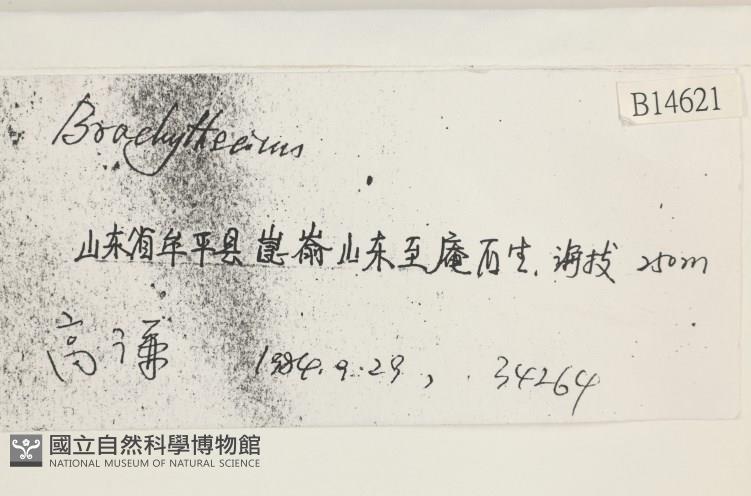 B14621
Brachythecium
山东省牟平县崑嵛山东至庵石生. 海拔 250m
高谦 1984.9.29, 34264
國立自然科學博物館
NATIONAL MUSEUM OF NATURAL SCIENCE